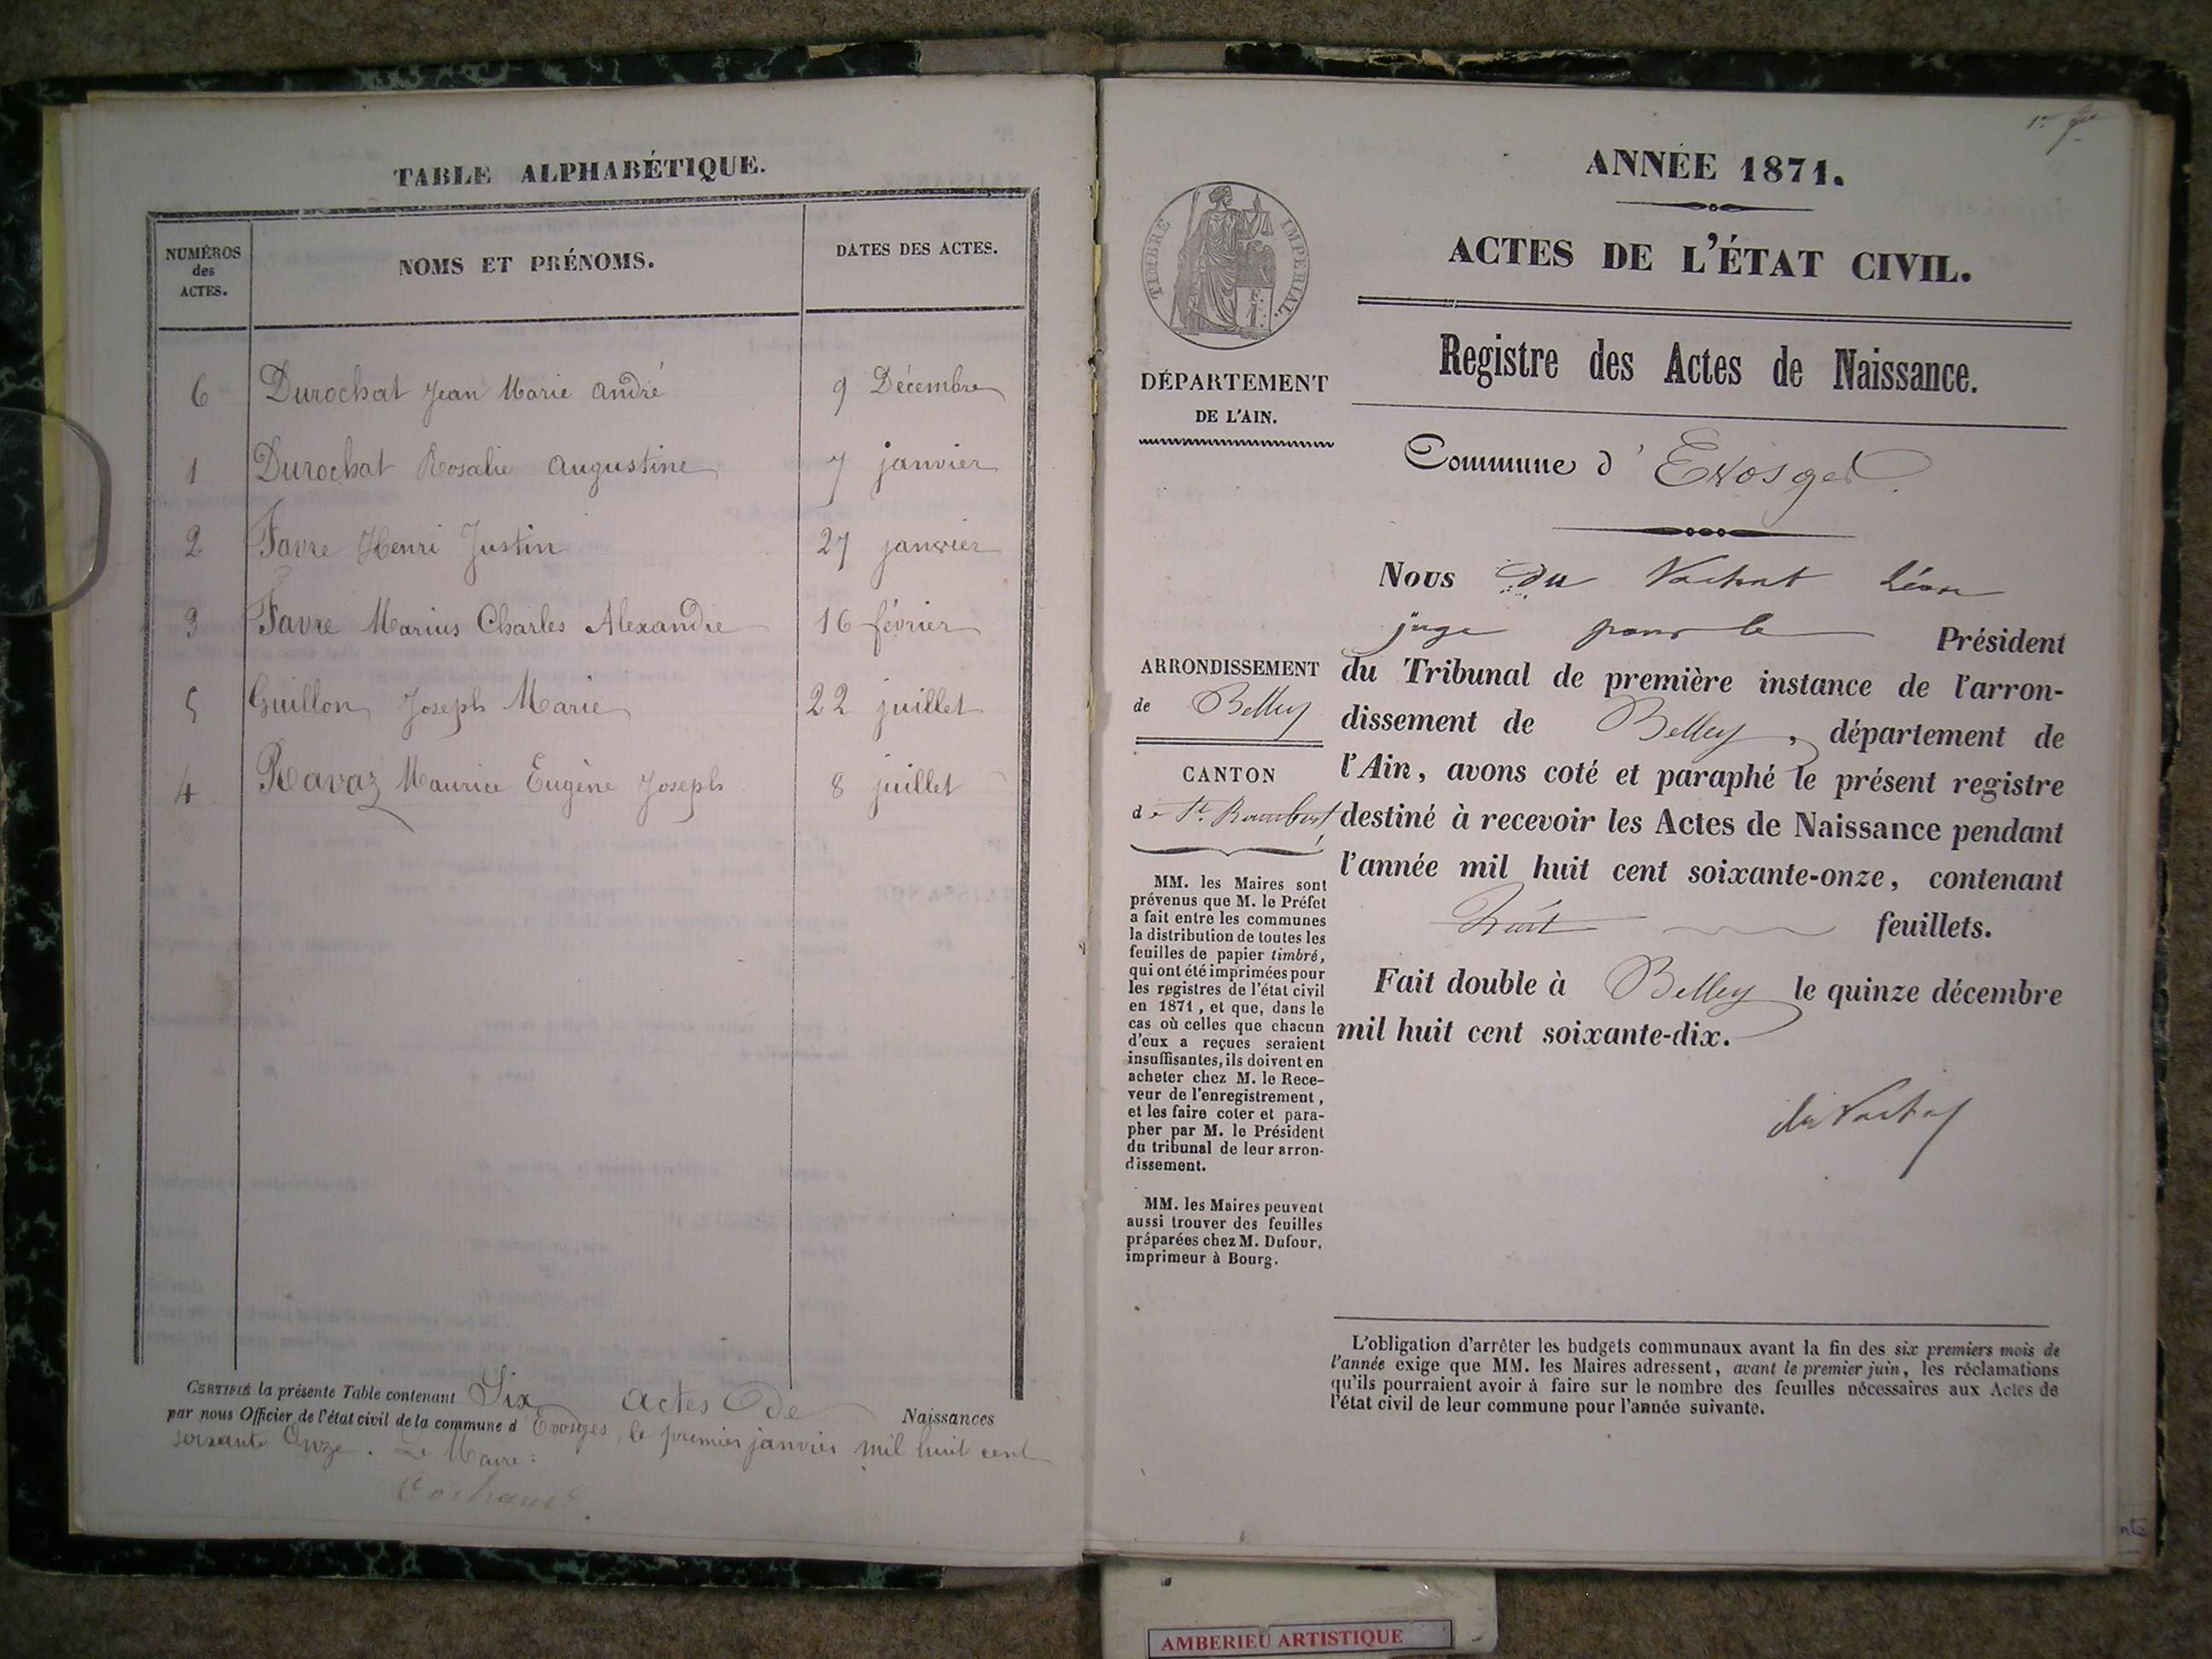 TABLE ALPHABÉTIQUE.
NUMÉROS
des
ACTES.
NOMS ET PRÉNOMS.
DATES DES ACTES.
6 Durochat Jean Marie andré 9 Décembre
1 Durochat Rosalie augustine 7 janvier
2 Favre Henri Justin 27 janvier
3 Favre Marius Charles Alexandre 16 février
5 Guillon Joseph Marie 22 juillet
4 Ravaz Maurice Eugène Joseph 8 juillet
CERTIFIÉ la présente Table contenant Six actes De Naissances
par nous Officier de l'état civil de la commune d Evosges, le premier janvier mil huit cent
soixante Onze. Le Maire:
ANNÉE 1871.
ACTES DE L'ÉTAT CIVIL.
Registre des Actes de Naissance.
TIMBRE IMPÉRIAL.
DÉPARTEMENT
DE L'AIN.
Commune d' Evosges
ARRONDISSEMENT
de Belley
CANTON
de St. Rambert
MM. les Maires sont
prévenus que M. le Préfet
a fait entre les communes
la distribution de toutes les
feuilles de papier timbré,
qui ont été imprimées pour
les registres de l'état civil
en 1871, et que, dans le
cas où celles que chacun
d'eux a reçues seraient
insuffisantes, ils doivent en
acheter chez M. le Rece-
veur de l'enregistrement,
et les faire coter et para-
pher par M. le Président
du tribunal de leur arron-
dissement.
MM. les Maires peuvent
aussi trouver des feuilles
préparées chez M. Dufour,
imprimeur à Bourg.
Nous du Vachat Léon
juge pour le Président
du Tribunal de première instance de l'arron-
dissement de Belley, département de
l'Ain, avons coté et paraphé le présent registre
destiné à recevoir les Actes de Naissance pendant
l'année mil huit cent soixante-onze, contenant
huit feuillets.
Fait double à Belley le quinze décembre
mil huit cent soixante-dix.
du Vachat
L'obligation d'arrêter les budgets communaux avant la fin des six premiers mois de
l'année exige que MM. les Maires adressent, avant le premier juin, les réclamations
qu'ils pourraient avoir à faire sur le nombre des feuilles nécessaires aux Actes de
l'état civil de leur commune pour l'année suivante.
AMBERIEU ARTISTIQUE